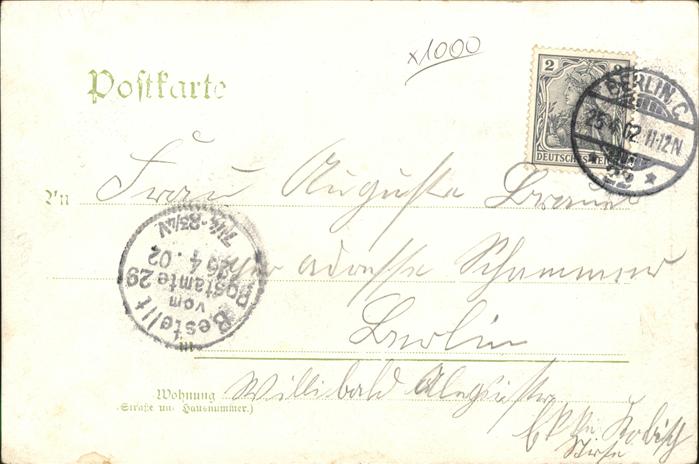 x1000
Postkarte
2 2
DEUTSCHES REICH
BERLIN C.
25 4 02 11-12N
* 22 *
An Frau Augusta
per Adresse Schammer
Bestellt
vom
Postamte 29
26 4. 02
7¼-8¾V
IN Berlin
Wohnung Willibald Alexisstr
(Straße und Hausnummer.)